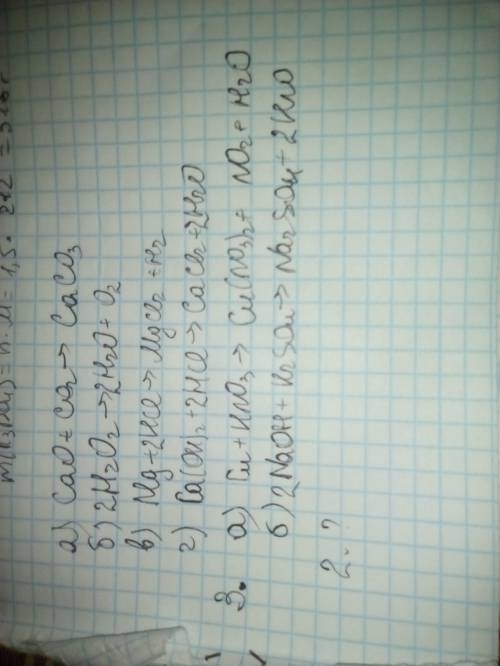 m(K3PO4) = n · M = 1,5 · 212 = 318 г
а) CaO + CO2 → CaCO3
б) 2H2O2 → 2H2O + O2
в) Mg + 2HCl → MgCl2 + H2
г) Ca(OH)2 + 2HCl → CaCl2 + 2H2O
3. а) Cu + HNO3 → Cu(NO3)2 + NO2 + H2O
б) 2NaOH + H2SO4 → Na2SO4 + 2H2O
2. ?